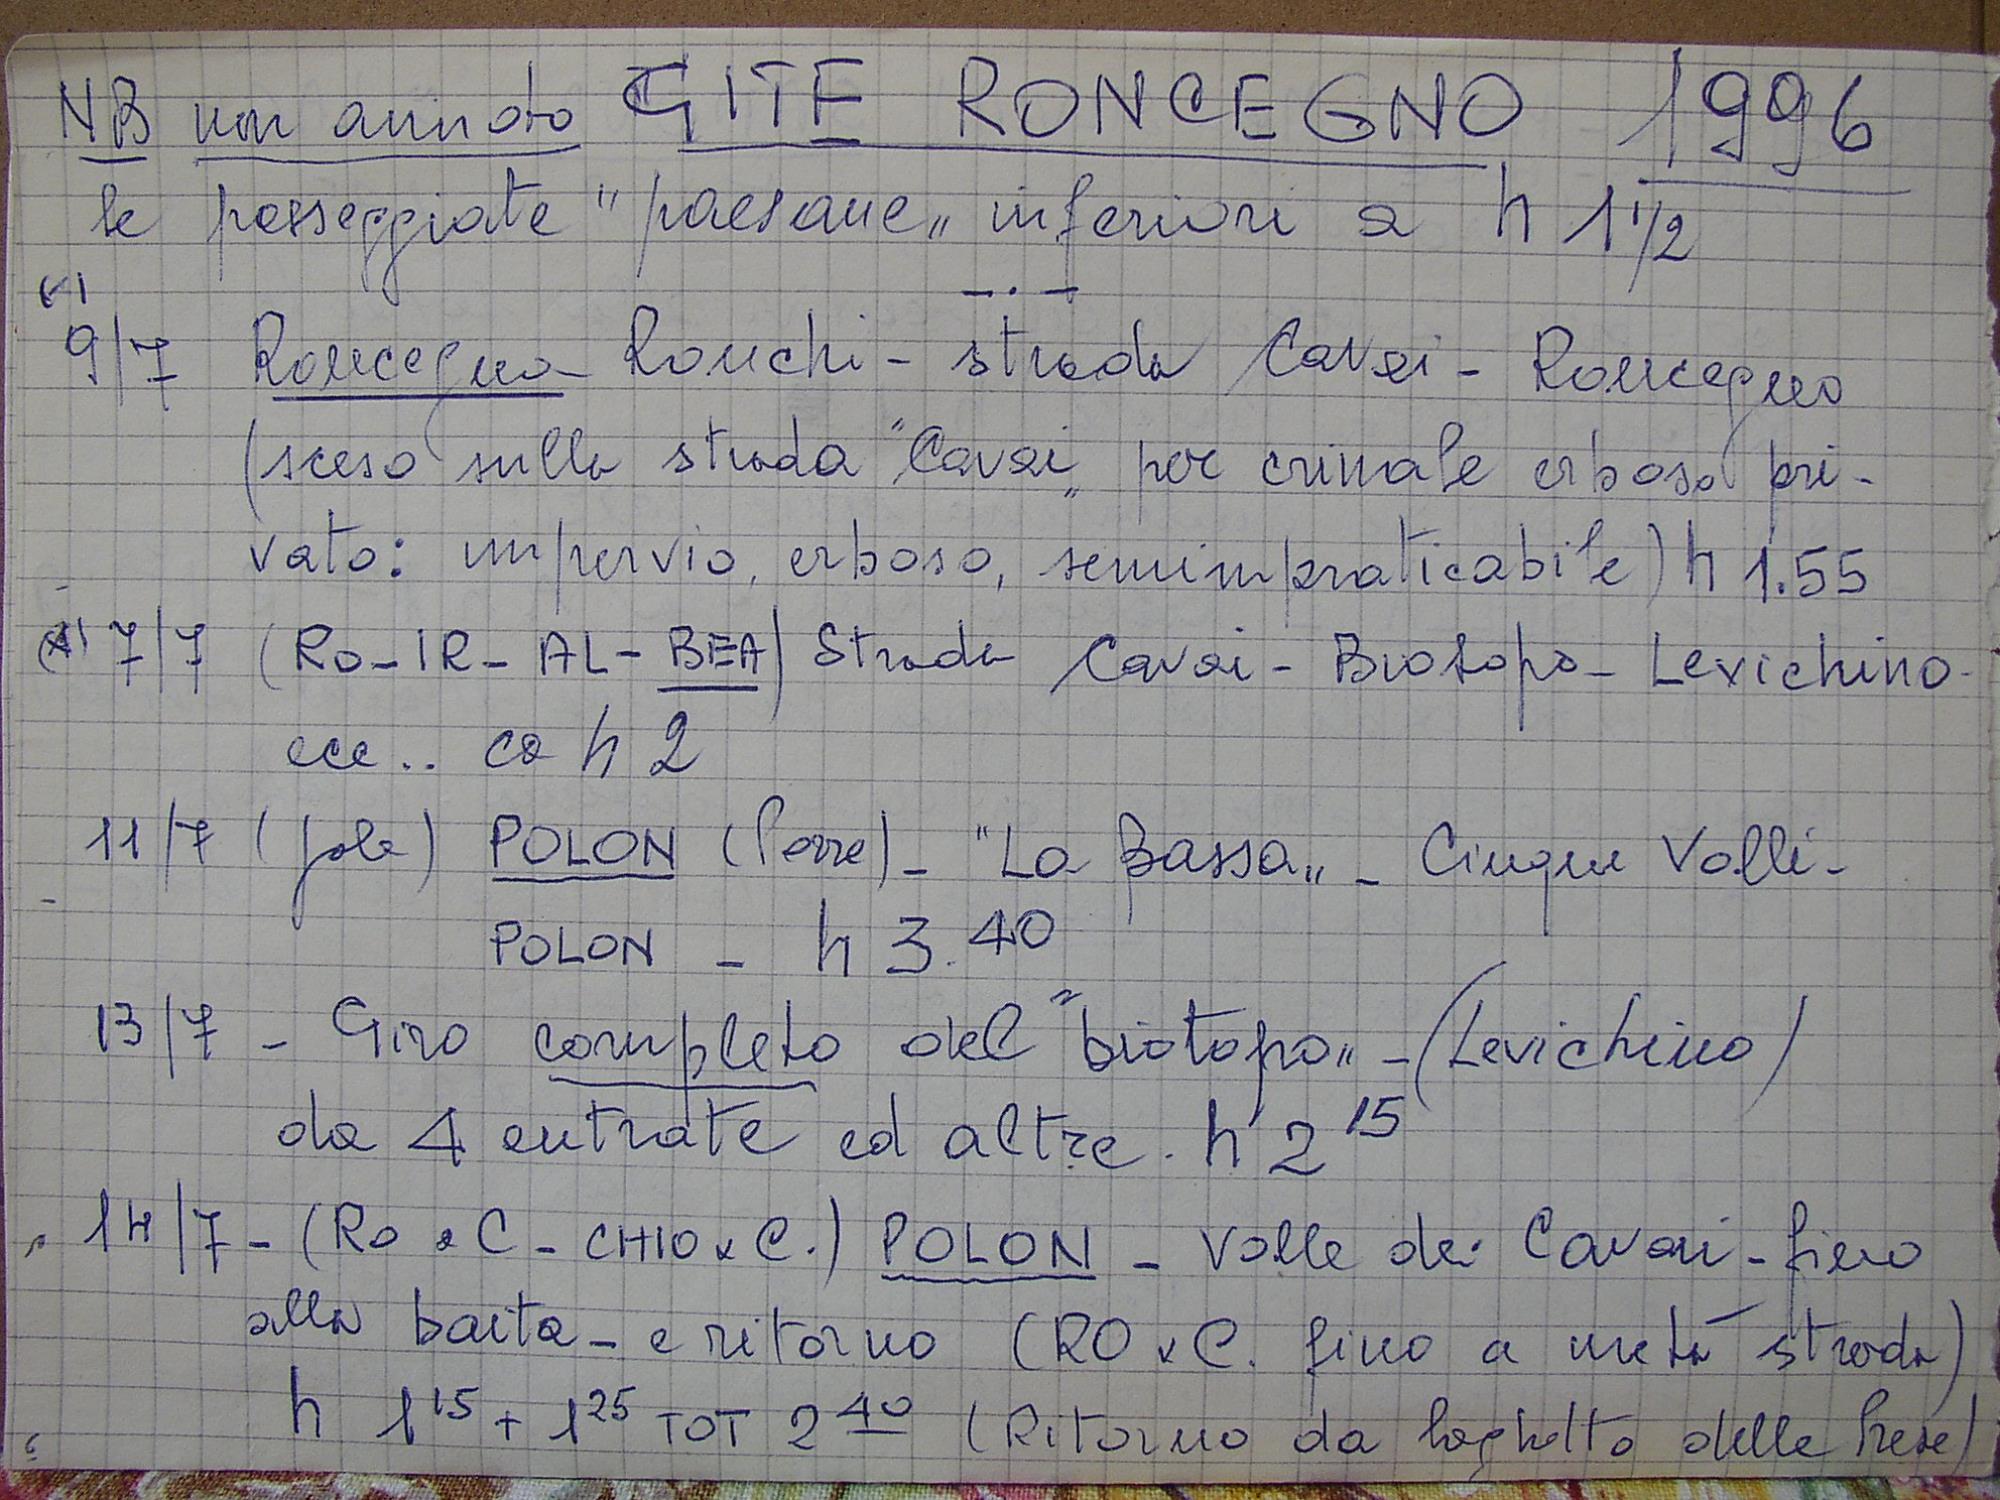 NB non annoto GITE RONCEGNO 1996
le passeggiate "paesane" inferiori a h 1 1/2
9/7 Roncegno - Ronchi - strada Cavai - Roncegno
(sceso sulla strada "Cavai" per crinale erboso pri-
vato: impervio, erboso, semimpraticabile) h 1.55
7/7 (RO-IR-AL-BEA) Strada Cavai - Biotopo - Levichino -
ecc.. ca h 2
11/7 (Jole) POLON (Porre) - "La Bassa" - Cinque Valli -
POLON - h 3.40
13/7 - Giro completo del "biotopo" - (Levichino)
da 4 entrate ed altre. h 2 15
14/7 - (RO e C - CHIO e C.) POLON - Valle dei Cavai - fino
alla baita - e ritorno (RO e C. fino a metà strada)
h 1 15 + 1 25 TOT 2 40 (Ritorno da laghetto delle Prese)